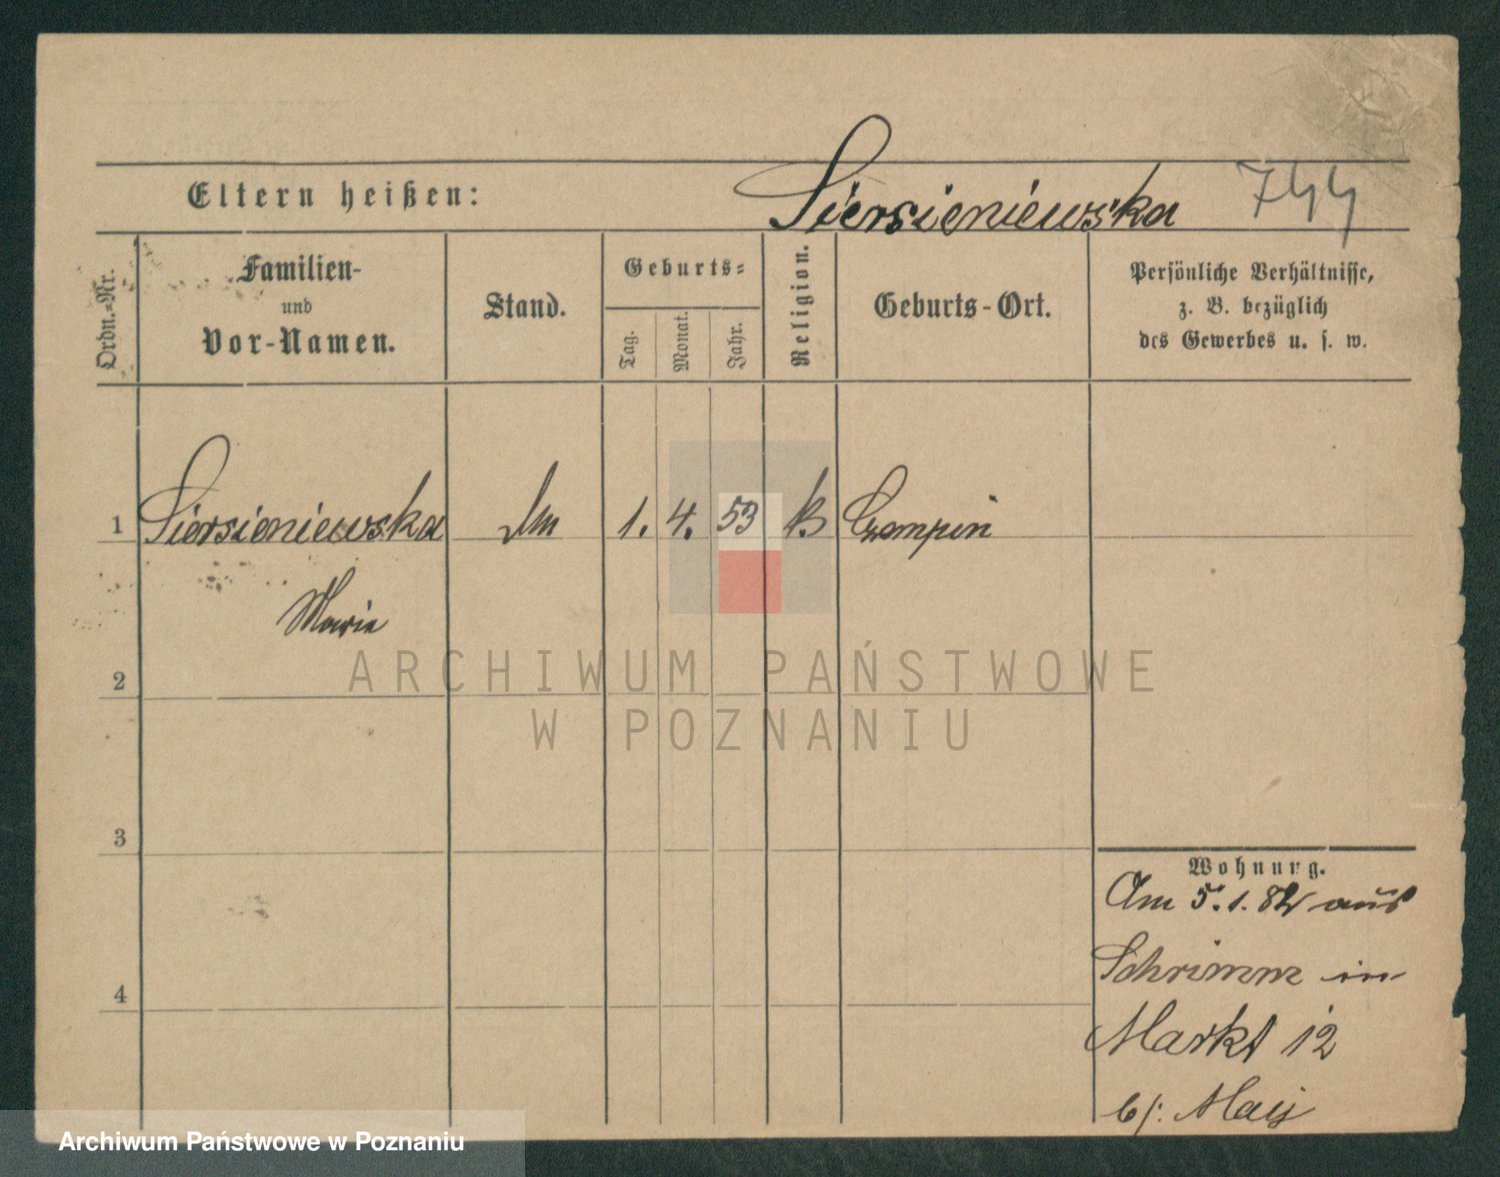 Siersieniewska 744
Eltern heißen:
Ordn.-Nr.
Familien-
und
Vor-Namen.
Stand.
Geburts-
Tag.
Monat.
Jahr.
Religion.
Geburts-Ort.
Persönliche Verhältnisse,
z. B. bezüglich
des Gewerbes u. s. w.
1 Siersieniewska 1. 4. 53 Czempin
Marie
2
3
4
Wohnung.
Am 5.1.82 aus
Schrimm in
Markt 12
b/:
ARCHIWUM PAŃSTWOWE
W POZNANIU
Archiwum Państwowe w Poznaniu